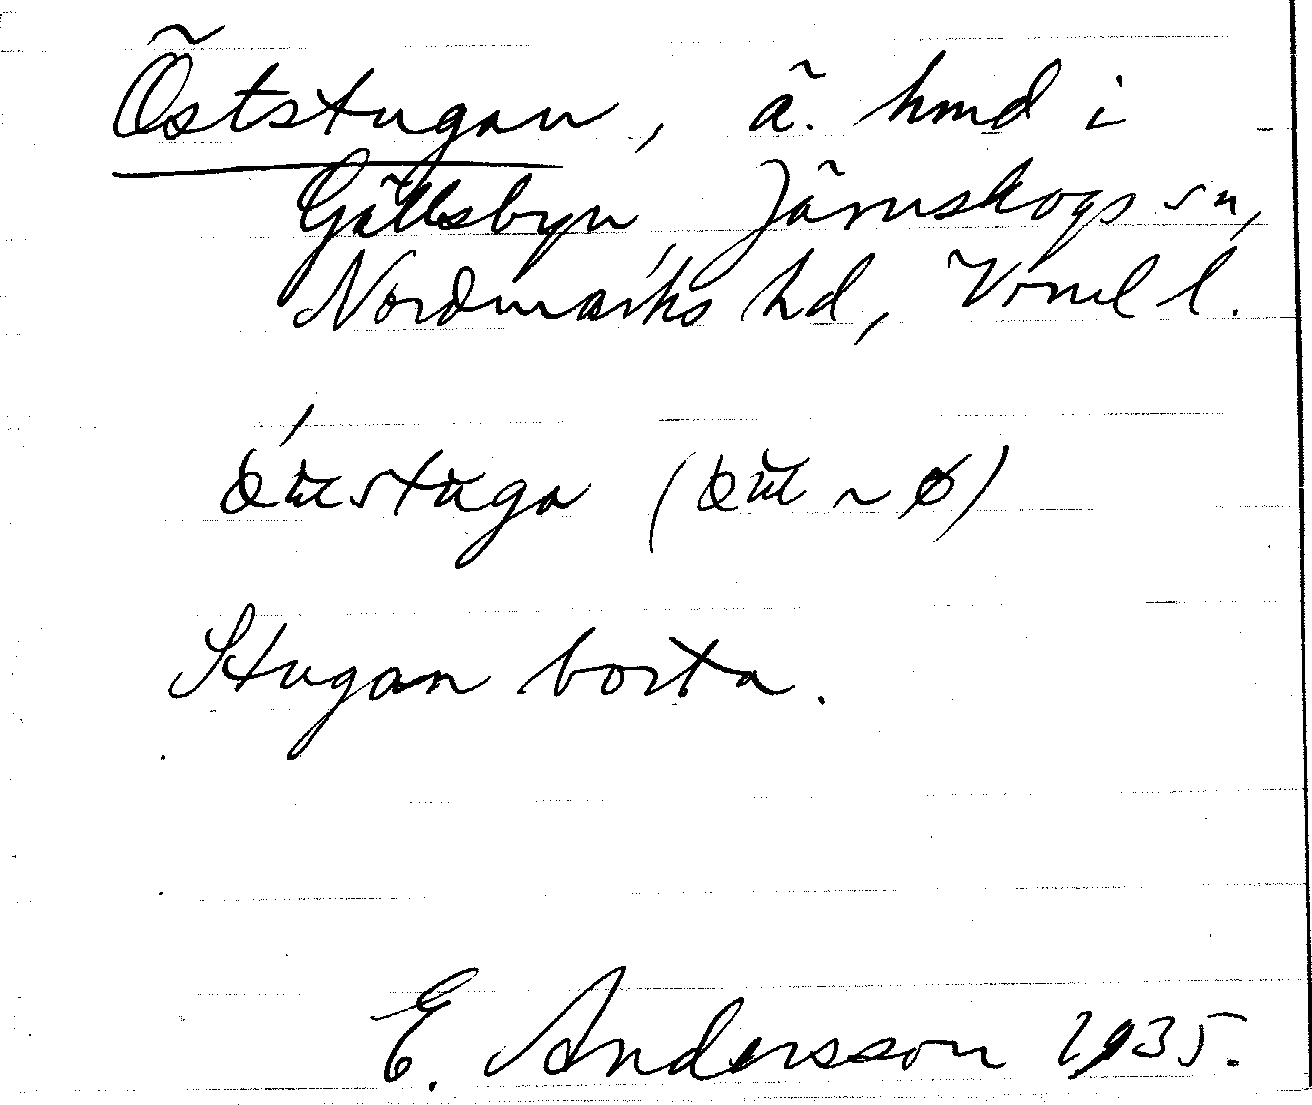 Öststugan, ä. hmd i
Gällsbyn, Järnskogs sn,
Nordmarks hd, Värml l.
Stugan borta.
E. Andersson 1935.